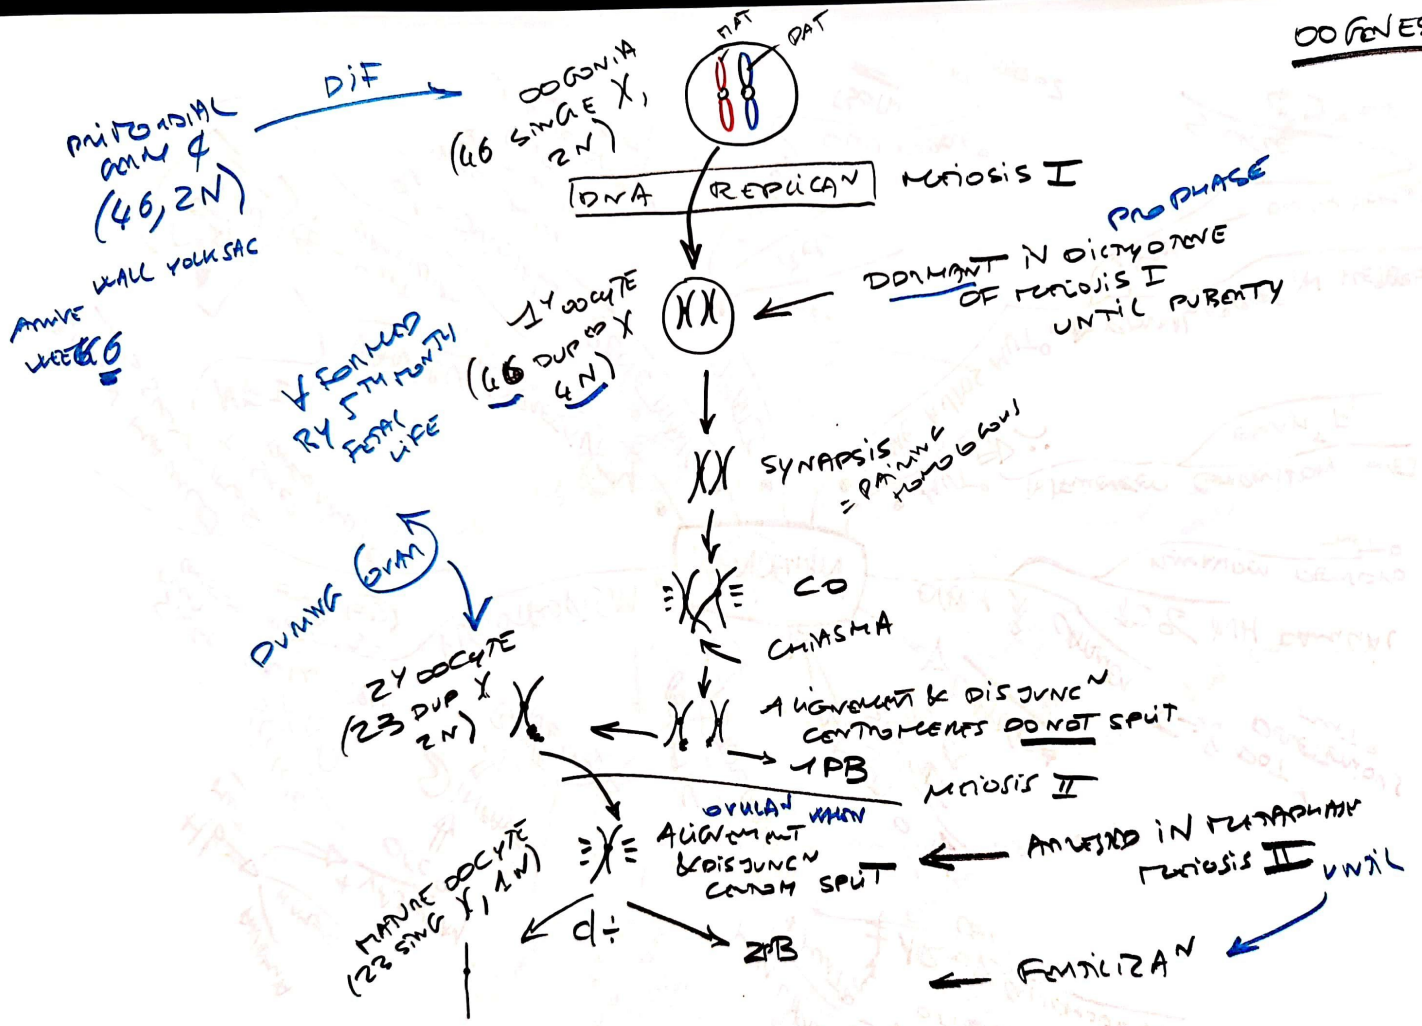 OOGENES
MAT
PAT
DIF
PRIMORDIAL
GERM ₵
(46, 2N)
WALL YOLK SAC
ARRIVE
WEEK 6
OOGONIA
(46 SINGLE X,
2N)
DNA REPLICAᴺ
MEIOSIS I
PROPHASE
DORMANT IN DICTYOTENE
OF MEIOSIS I
UNTIL PUBERTY
1Y OOCYTE
(46 DUPᵉᵈ X
4N)
∀ FORMED
BY 5TH MONTH
FETAL
LIFE
SYNAPSIS
= PAIRING
HOMOLOGOUS
CO
CHIASMA
DURING OVAR
2Y OOCYTE
(23 DUP X
2N)
ALIGNEMENT & DISJUNCᴺ
CENTROMERES DO NOT SPLIT
1PB
MEIOSIS II
OVULAᴺ WHEN
ALIGNEMENT
& DISJUNCᴺ
CENTROM SPLIT
ARRESTED IN METAPHASE
MEIOSIS II
UNTIL
MATURE OOCYTE
(23 SING X, 1N)
d÷
2PB
FERTILIZAᴺ